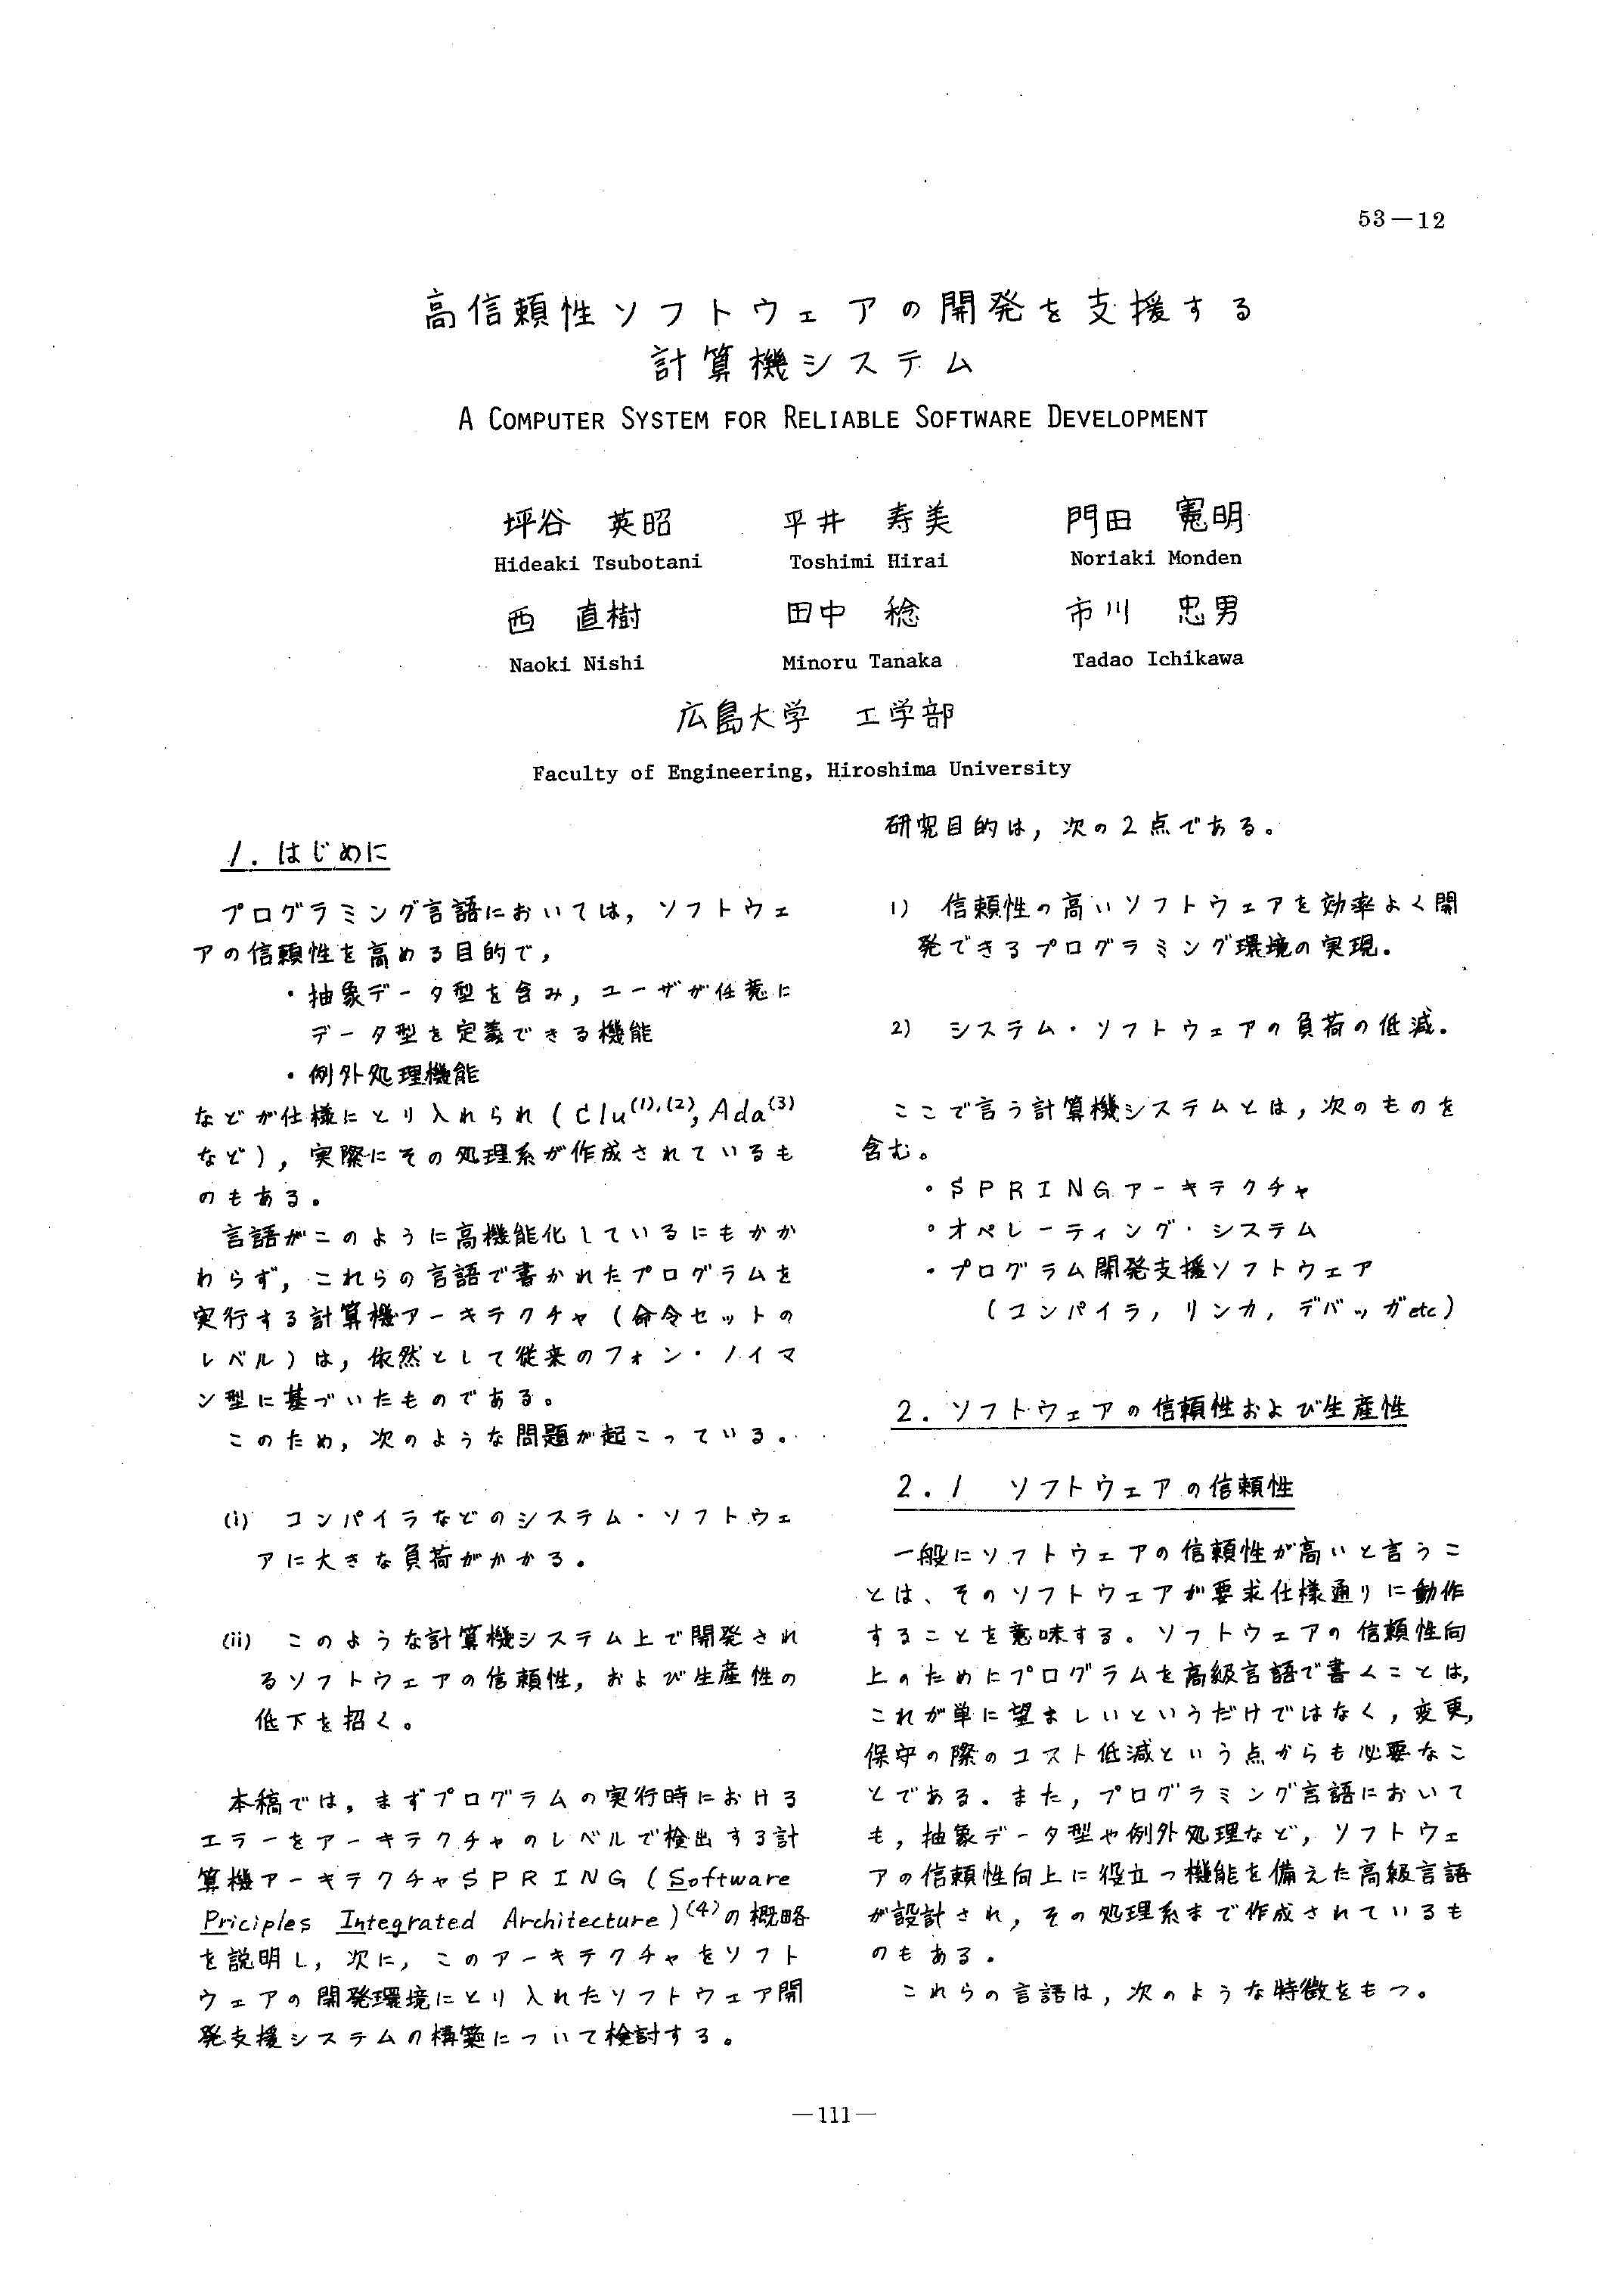 53—12
高信頼性ソフトウェアの開発を支援する
計算機システム
A COMPUTER SYSTEM FOR RELIABLE SOFTWARE DEVELOPMENT
坪谷 英昭 平井 寿美 門田 憲明
Hideaki Tsubotani Toshimi Hirai Noriaki Monden
西 直樹 田中 稔 市川 忠男
Naoki Nishi Minoru Tanaka Tadao Ichikawa
広島大学 工学部
Faculty of Engineering, Hiroshima University
1. はじめに
プログラミング言語においては，ソフトウェ
アの信頼性を高める目的で，
・抽象データ型を含み，ユーザが任意に
データ型を定義できる機能
・例外処理機能
などが仕様にとり入れられ(Clu(1),(2), Ada(3)
など)，実際にその処理系が作成されているも
のもある。
言語がこのように高機能化しているにもかか
わらず，これらの言語で書かれたプログラムを
実行する計算機アーキテクチャ(命令セットの
レベル)は，依然として従来のフォン・ノイマ
ン型に基づいたものである。
このため，次のような問題が起こっている。
(i) コンパイラなどのシステム・ソフトウェ
アに大きな負荷がかかる。
(ii) このような計算機システム上で開発され
るソフトウェアの信頼性，および生産性の
低下を招く。
本稿では，まずプログラムの実行時における
エラーをアーキテクチャのレベルで検出する計
算機アーキテクチャSPRING(Software
Priciples Integrated Architecture)(4)の概略
を説明し，次に，このアーキテクチャをソフト
ウェアの開発環境にとり入れたソフトウェア開
発支援システムの構築について検討する。
研究目的は，次の2点である。
1) 信頼性の高いソフトウェアを効率よく開
発できるプログラミング環境の実現。
2) システム・ソフトウェアの負荷の低減。
ここで言う計算機システムとは，次のものを
含む。
・SPRINGアーキテクチャ
・オペレーティング・システム
・プログラム開発支援ソフトウェア
(コンパイラ，リンカ，デバッガetc)
2. ソフトウェアの信頼性および生産性
2.1 ソフトウェアの信頼性
一般にソフトウェアの信頼性が高いと言うこ
とは、そのソフトウェアが要求仕様通りに動作
することを意味する。ソフトウェアの信頼性向
上のためにプログラムを高級言語で書くことは，
これが単に望ましいというだけではなく，変更，
保守の際のコスト低減という点からも必要なこ
とである。また，プログラミング言語において
も，抽象データ型や例外処理など，ソフトウェ
アの信頼性向上に役立つ機能を備えた高級言語
が設計され，その処理系まで作成されているも
のもある。
これらの言語は，次のような特徴をもつ。
—111—